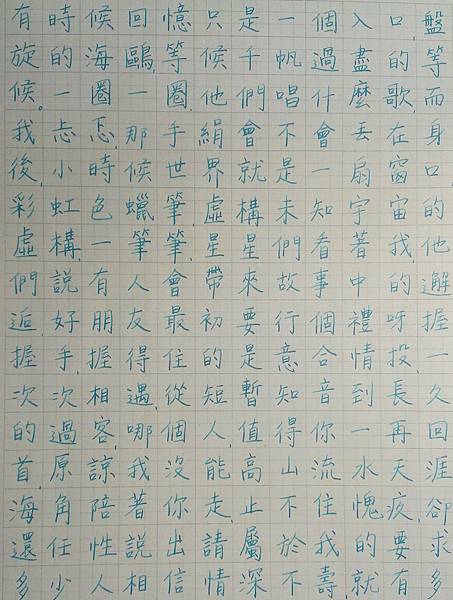 有時候回憶只是一個入口,盤
旋的海鷗,等候千帆過盡的等
候。一圈一圈,他們唱什麼歌,而
我忐忑,那手絹會不會丟在身
後,小時候世界就是一扇窗口,
彩虹色蠟筆,虛構未知宇宙的
虛構,一筆筆,星星們看著我,他
們說有人會帶來故事中的邂
逅,好朋友最初要行個禮呀握
握手,握得住的是意合情投,一
次次相遇,從短暫知音到長久
的過客,哪個人,值得你一再回
首,原諒我沒能高山流水天涯
海角陪著你走,止不住愧疚,卻
還任性說出請屬於我的要求
多少人相信情深不壽,就有多